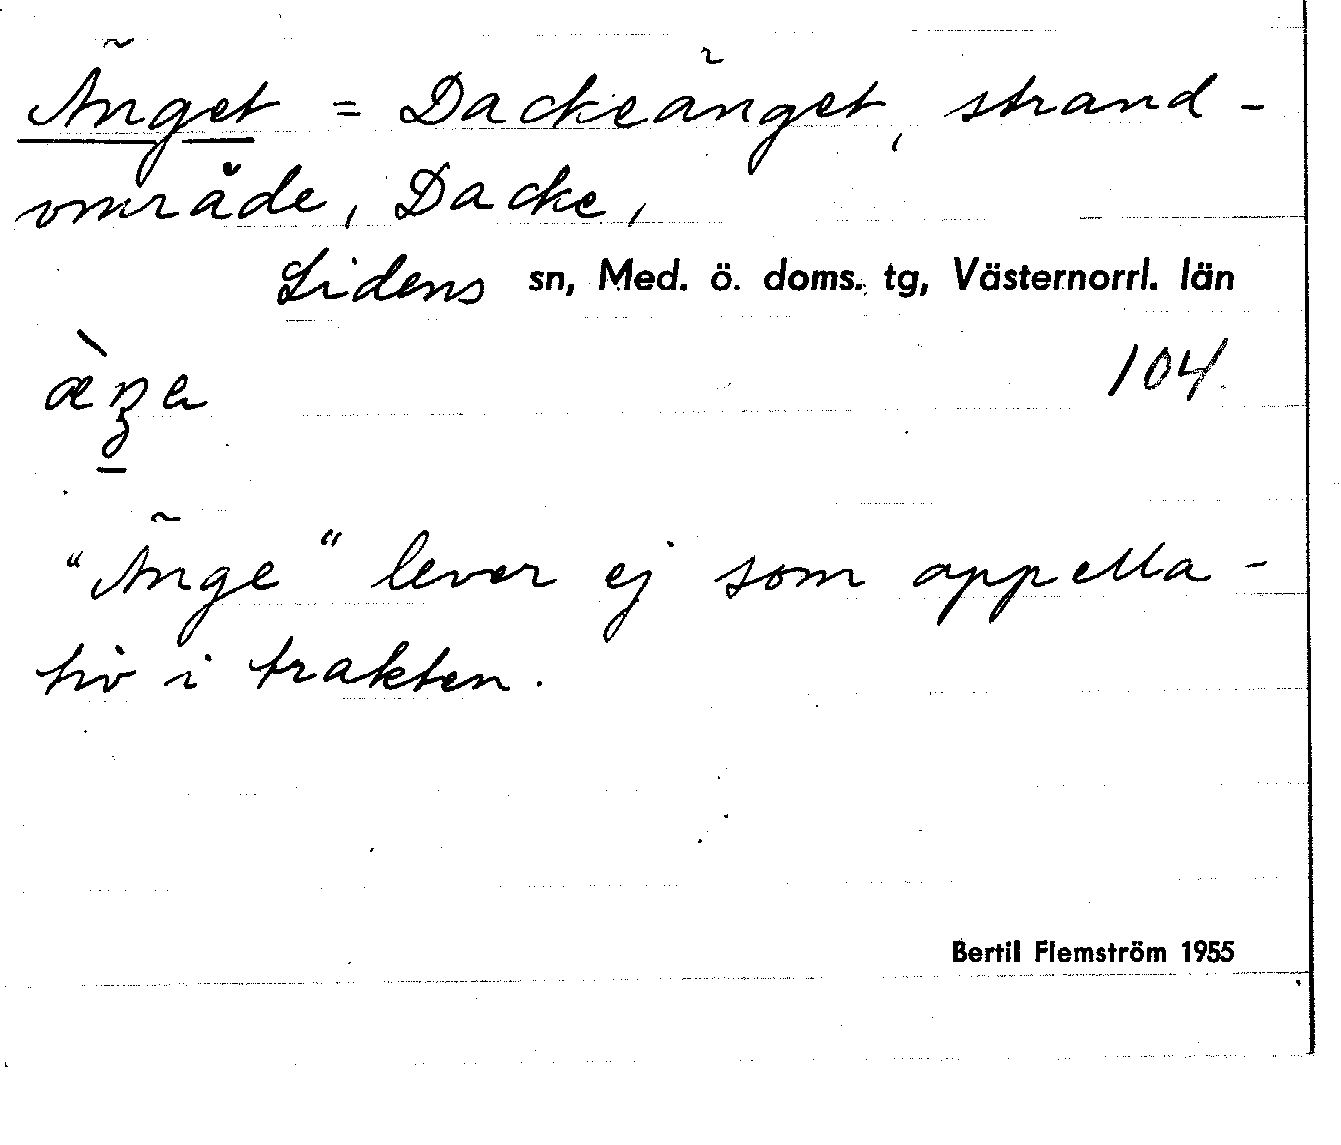 Änget = Dackeänget, strand-
område, Dacke,
Lidens sn, Med. ö. doms. tg, Västernorrl. län
104
"Änge" lever ej som appella-
tiv i trakten.
Bertil Flemström 1955